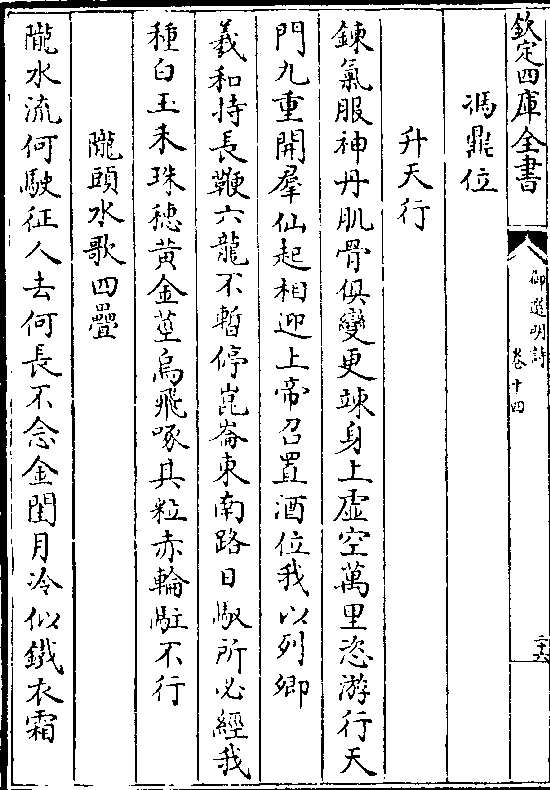 欽定四庫全書
御選明詩
卷十四
二十六
馮鼎位
升天行
鍊氣服神丹肌骨俱變更竦身上虛空萬里恣游行天
門九重開羣仙起相迎上帝召置酒位我以列卿
羲和持長鞭六龍不暫停崑崙東南路日馭所必經我
種白玉禾珠穗黃金莖烏飛啄其粒赤輪駐不行
隴頭水歌四疊
隴水流何駛征人去何長不念金閨月冷似鐵衣霜